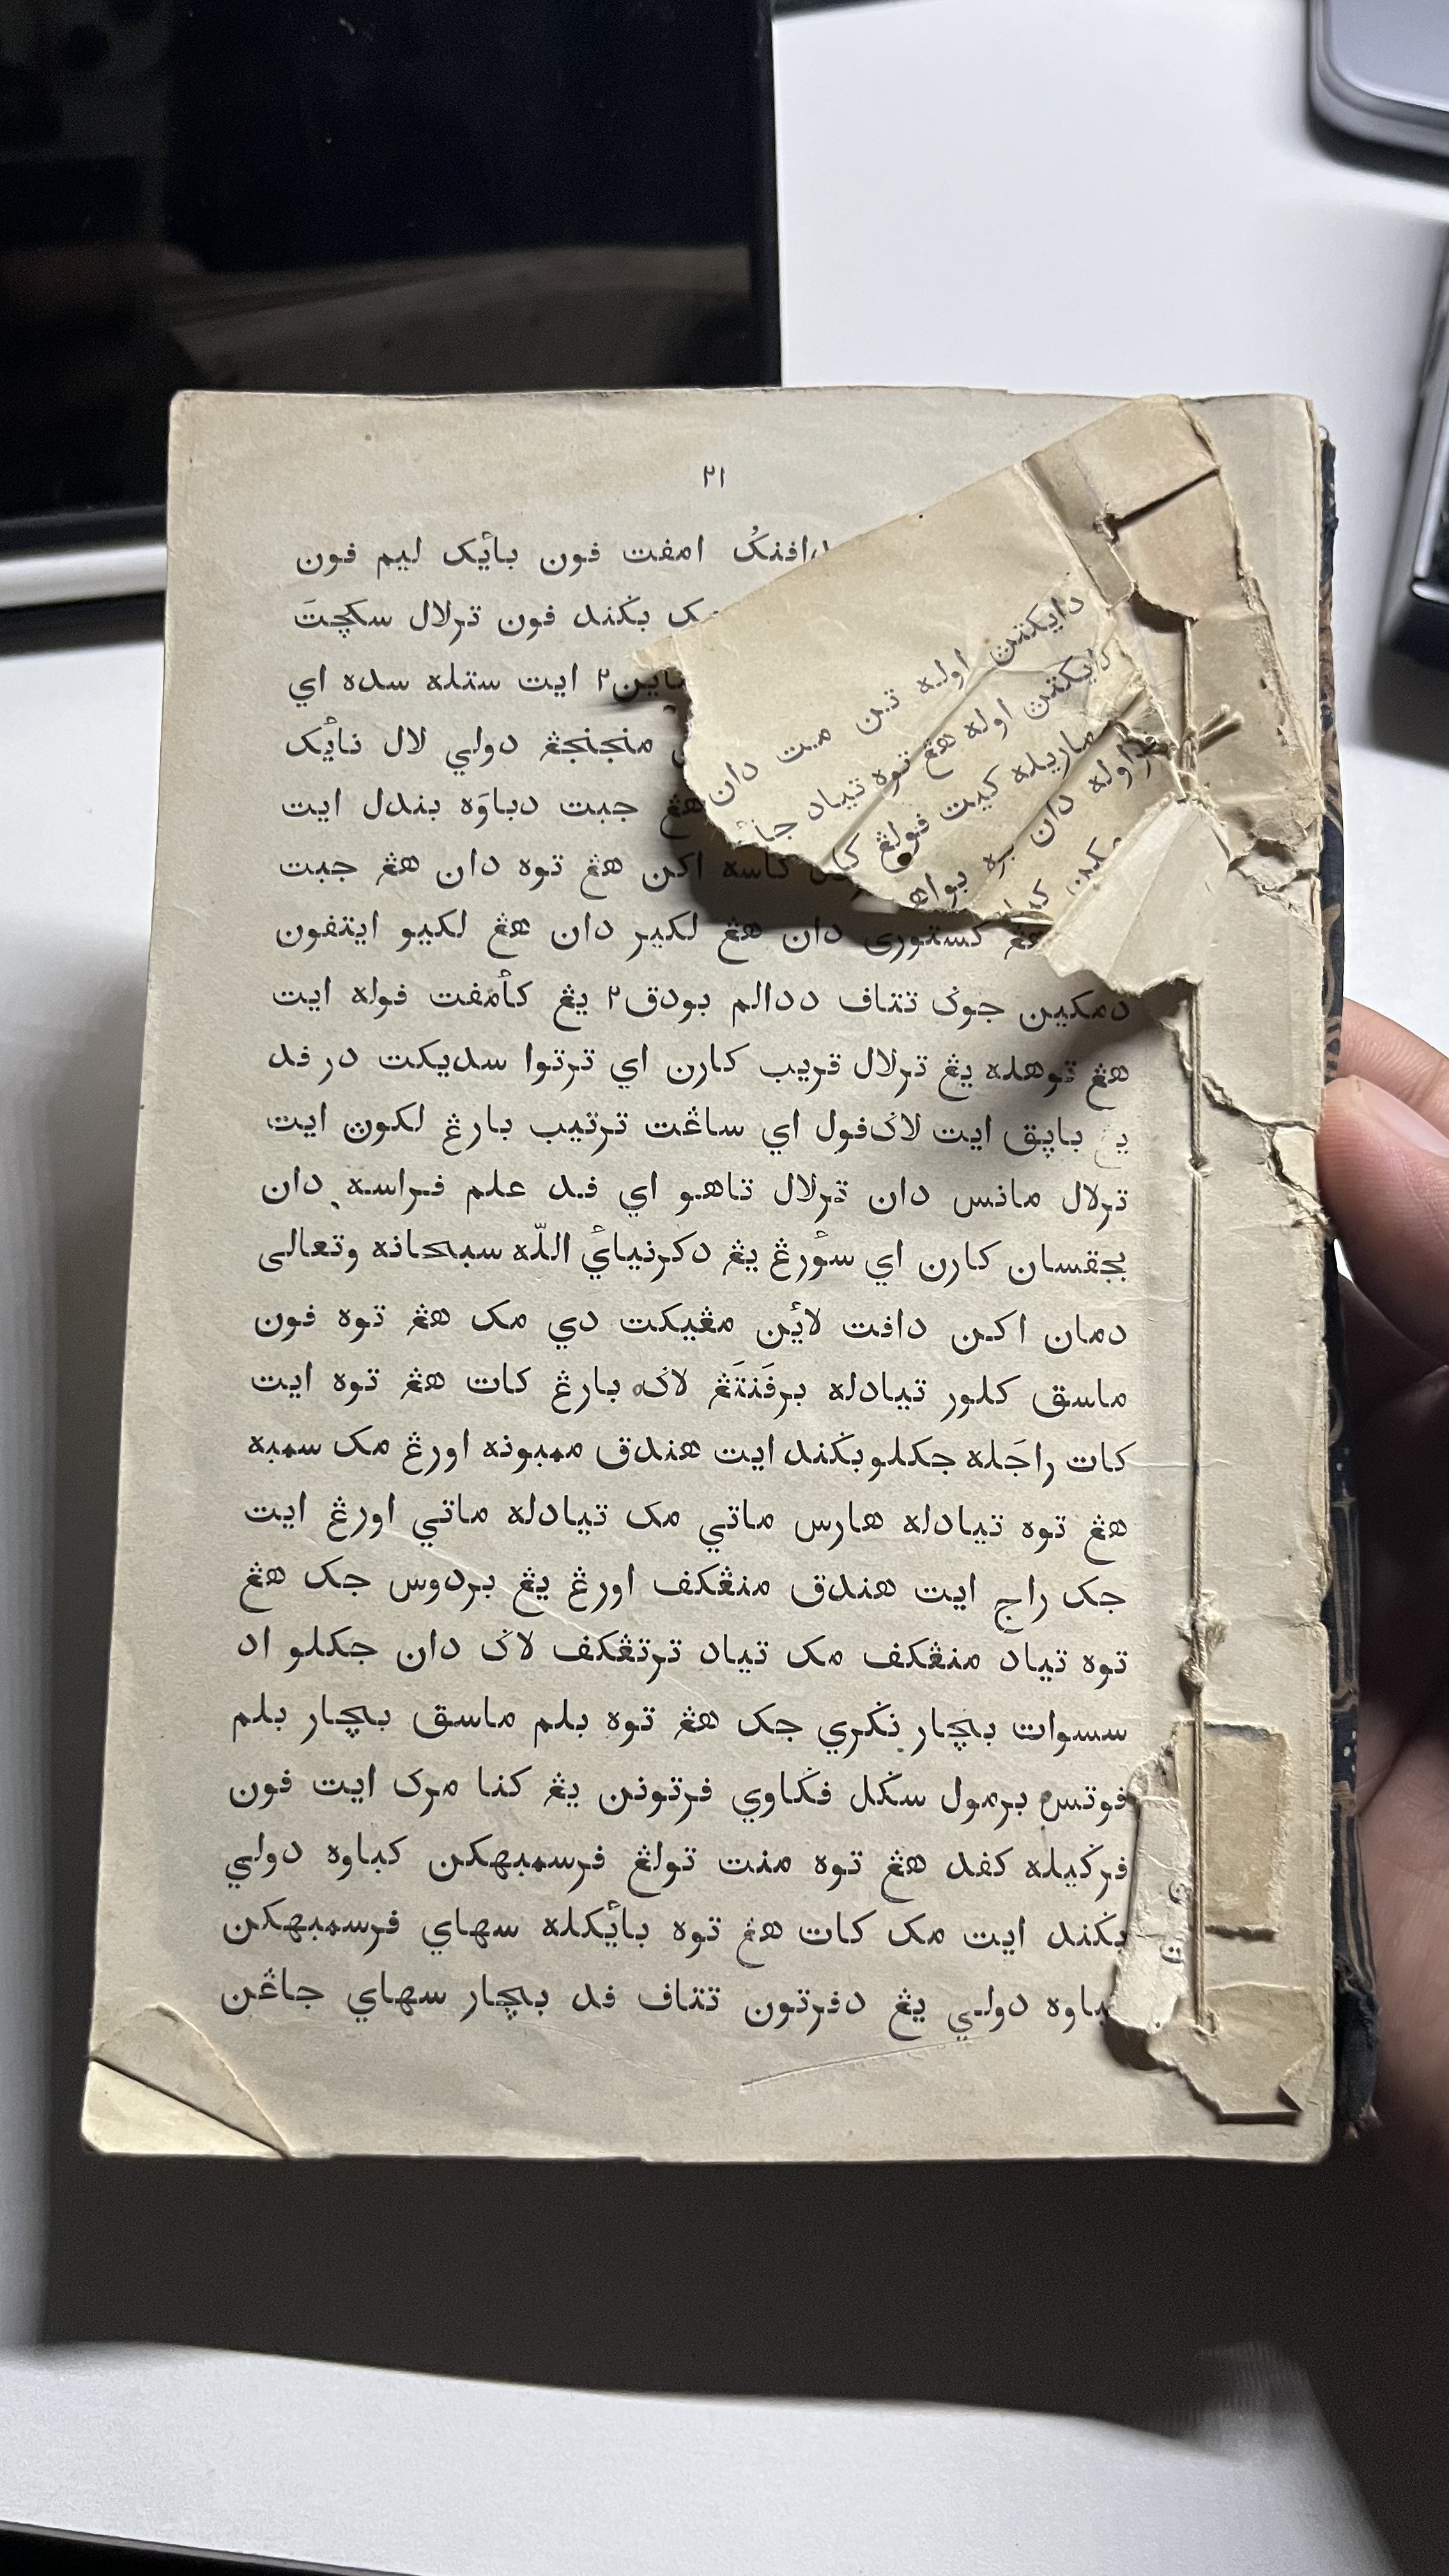 ٢١
دافتکُ امفت فون بأيک ليم فون
مک بݢند فون ترلال سکچتَ
ماين٢ ايت ستله سده اي
منجنجڠ دولي لال نأيک
هڠ جبت دباوَه بندل ايت
کاسه اکن هڠ توه دان هڠ جبت
هڠ کستوري دان هڠ لکير دان هڠ لکيو ايتفون
دمکين جوݢ تتاف ددالم بودق٢ يڠ کأمفت فوله ايت
هڠ توهله يڠ ترلال قريب کارن اي ترتوا سديکت در فد
باپق ايت لاݢفول اي ساڠت ترتيب بارڠ لکون ايت
ترلال مانس دان ترلال تاهو اي فد علم فراسه دان
بجقسان کارن اي سؤرڠ يڠ دکرنيائي اللّه سبحانه وتعالى
دمان اکن دافت لأين مڠيکت دي مک هڠ توه فون
ماسق کلور تيادله برفَنتَڠ لاݢ بارڠ کات هڠ توه ايت
کات راجَله جکلو بݢند ايت هندق ممبونه اورڠ مک سمبه
هڠ توه تيادله هارس ماتي مک تيادله ماتي اورڠ ايت
جک راج ايت هندق منڠکف اورڠ يڠ بردوس جک هڠ
توه تياد منڠکف مک تياد ترتڠکف لاݢ دان جکلو اد
سسوات بچار نݢري جک هڠ توه بلم ماسق بچار بلم
فوتس برمول سݢل فݢاوي فرتونن يڠ کنا مرک ايت فون
فرݢيله کفد هڠ توه منت تولڠ فرسمبهکن کباوه دولي
بݢند ايت مک کات هڠ توه بأيکله سهاي فرسمبهکن
دولي يڠ دفرتون تتاف فد بچار سهاي جاڠن
دايکتن اوله تن مت دان
دايکتن اوله هڠ توه تياد
ماريله کيت فولڠ
اوله دان